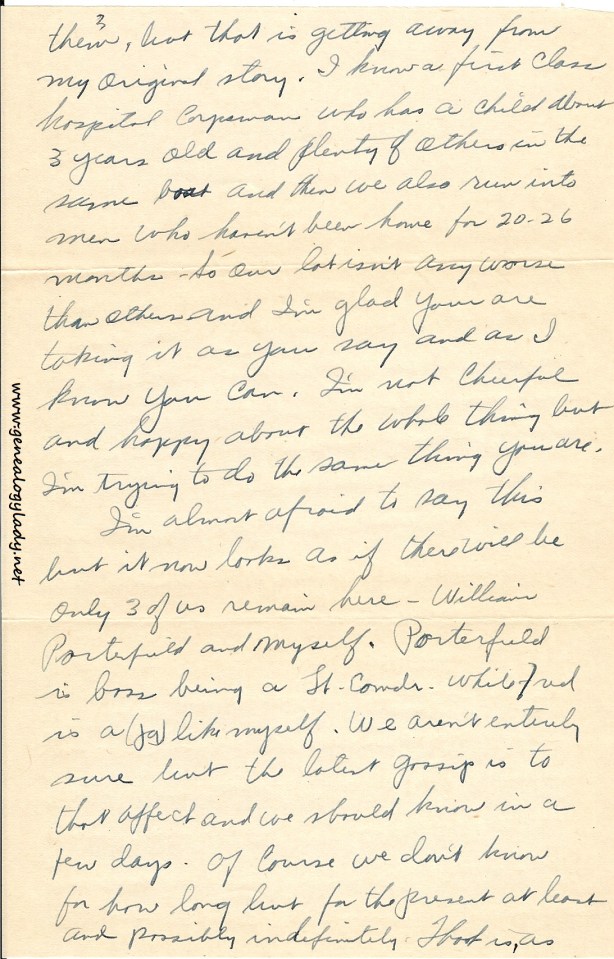 3
them, but that is getting away from
my original story. I know a first class
hospital Corpsman who has a child about
3 years old and plenty of others in the
same boat and then we also run into
men who haven't been home for 20-26
months - so our lot isn't any worse
than others and I'm glad your are
taking it as you say and as I
know you can. I'm not cheerful
and happy about the whole thing but
I'm trying to do the same thing you are.
I'm almost afraid to say this
but it now looks as if there will be
only 3 of us remain here - William
Porterfield and myself. Porterfield
is boss being a Lt. Comdr. while Fred
is a (jg) like myself. We aren't entirely
sure but the latest gossip is to
that affect and we should know in a
few days. Of course we don't know
for how long but for the present at least
and possibly indefinitely. That is, as
www.genealogylady.net